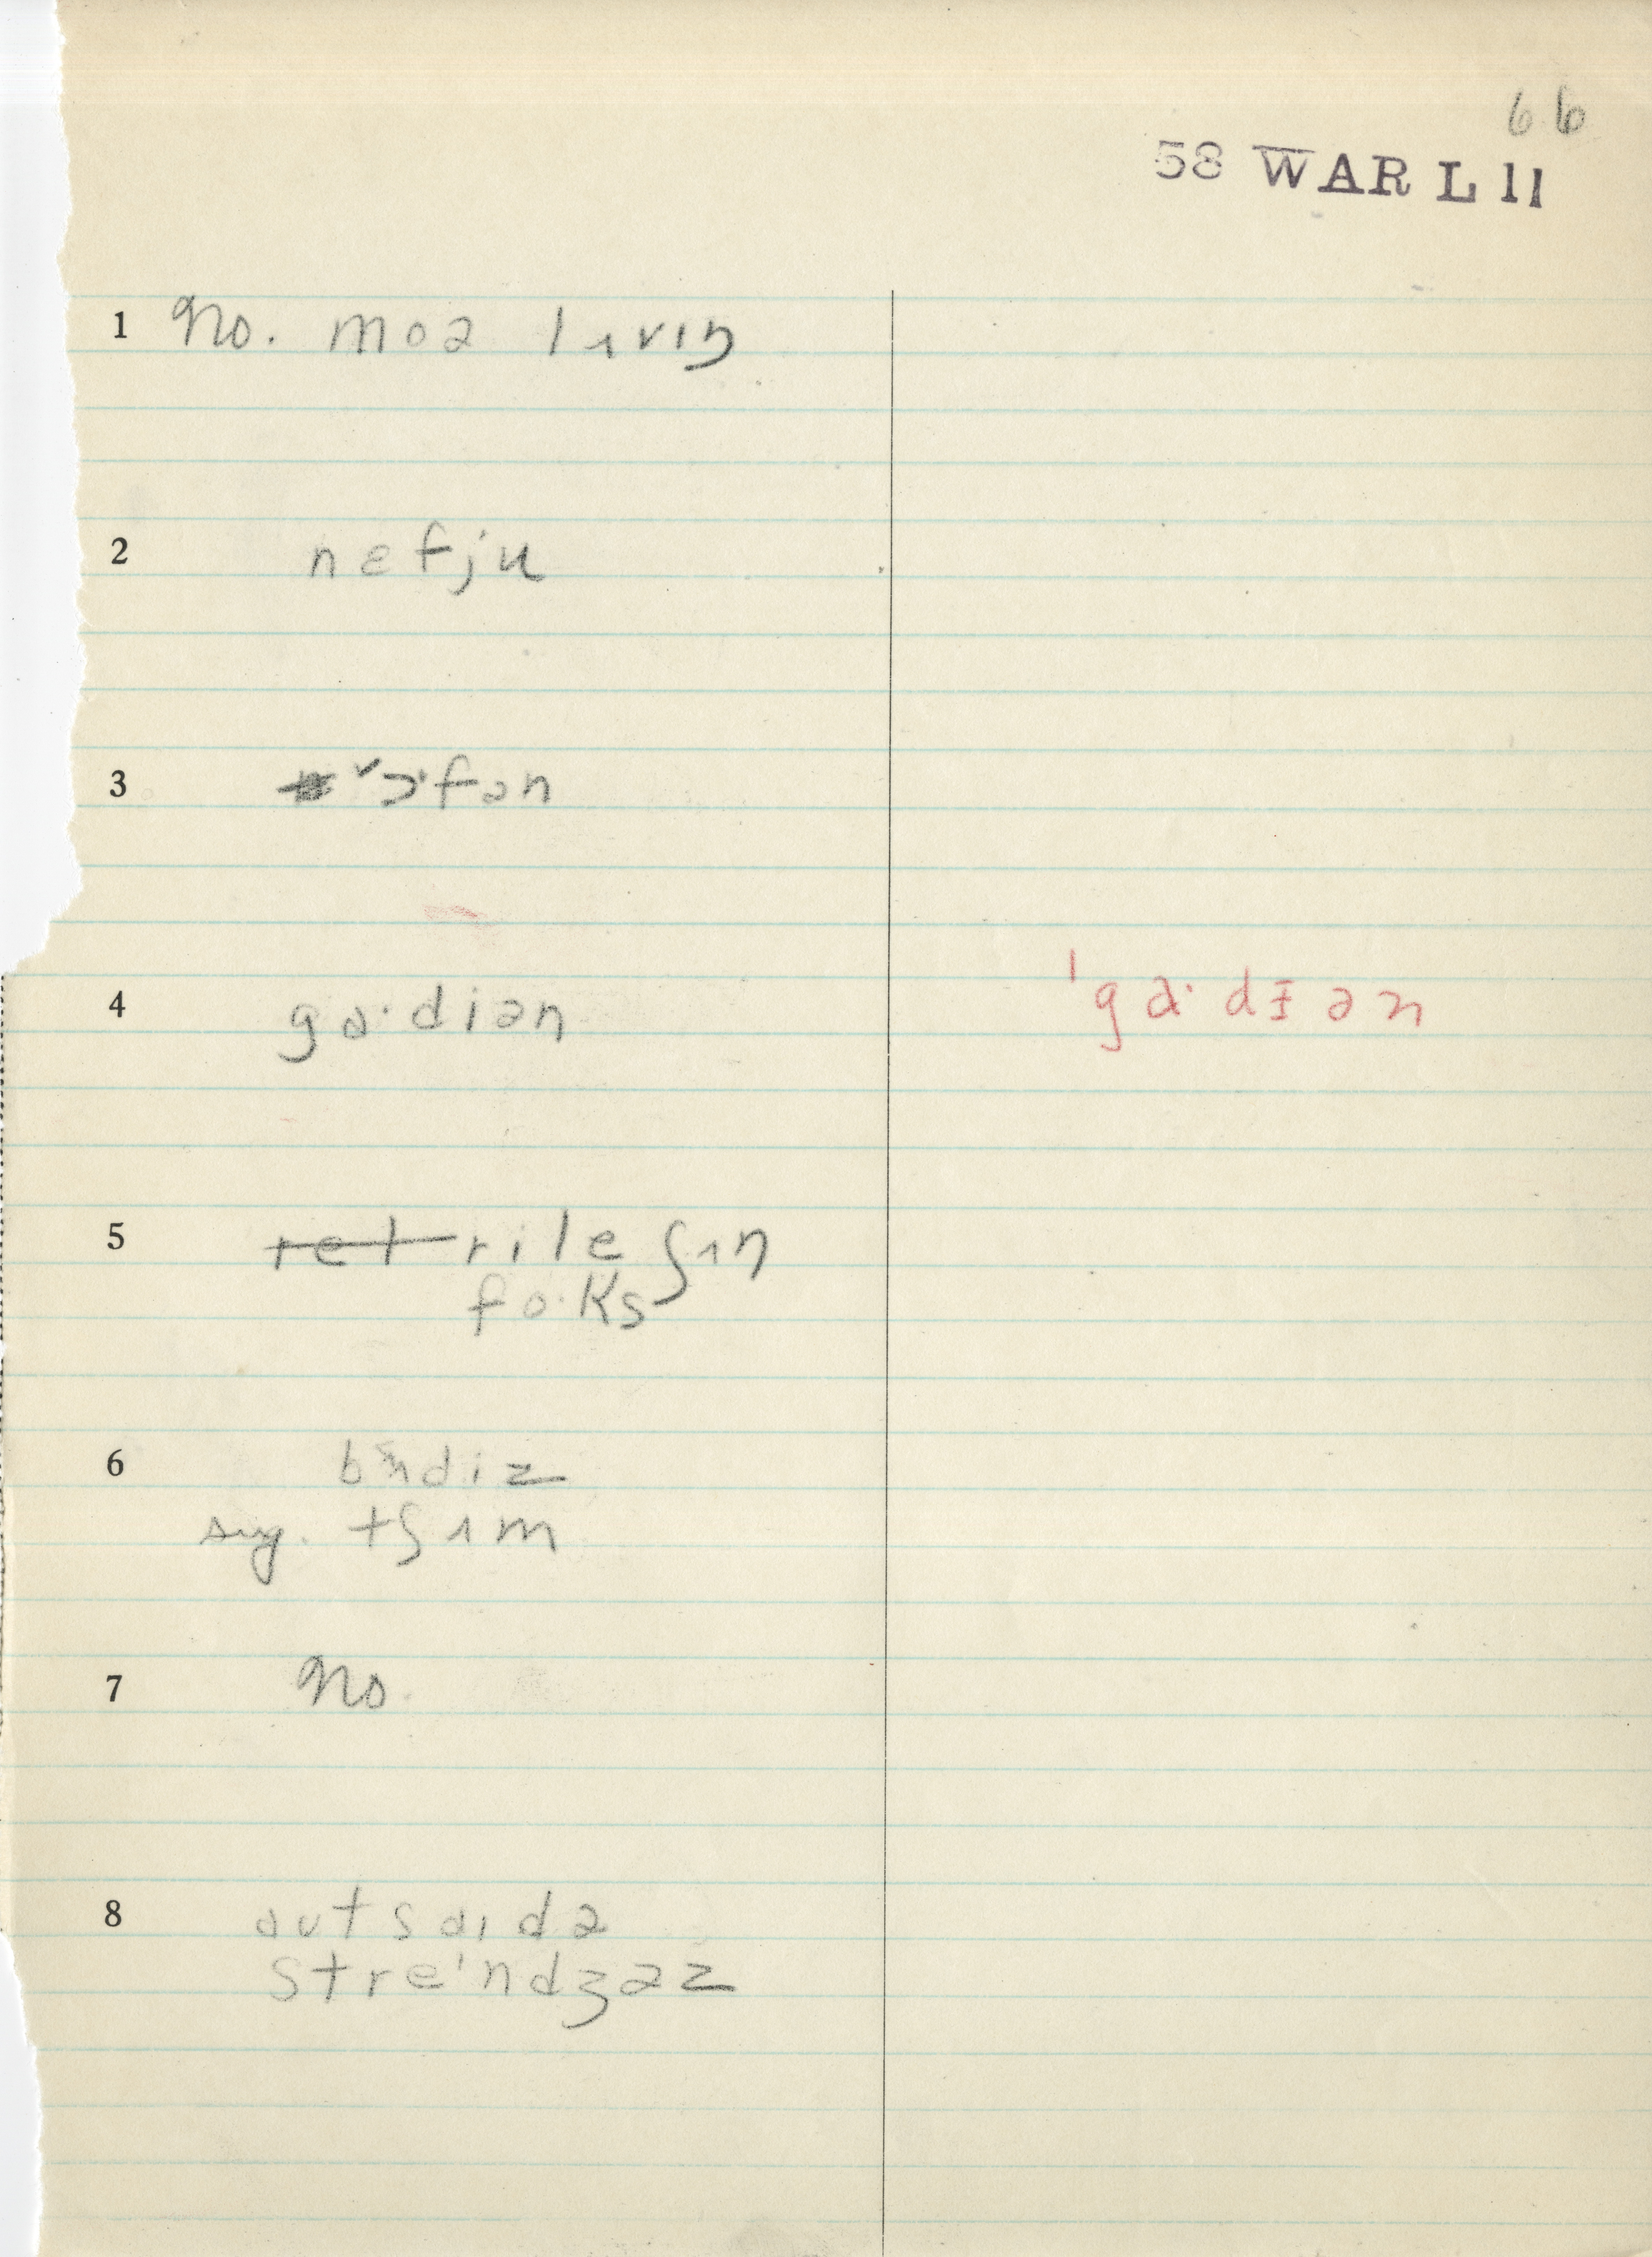 66
58 WAR L 11
1 No. moə lɪvɪŋ
2 nɛfju
3 ɔ·fən
4 ga·diən ˈga·dɪən
5 ret rileʃɪn
fo·ks
6 bʌdiz
sug. tʃɪm
7 No.
8 autsaɪdə
stre'ndʒəz